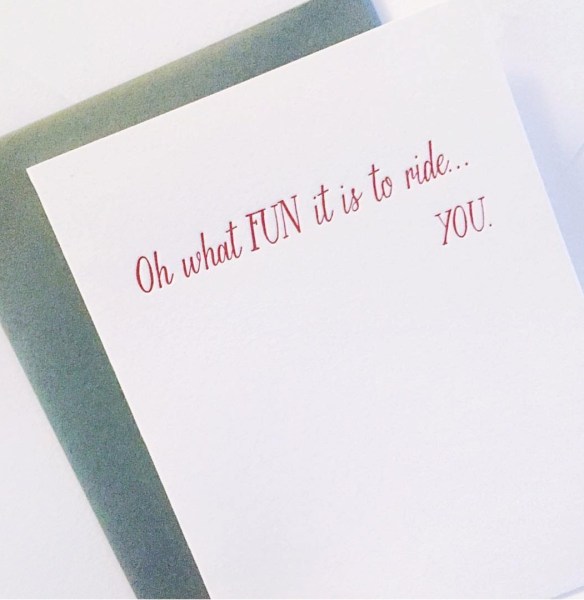 Oh what FUN it is to ride...
YOU.